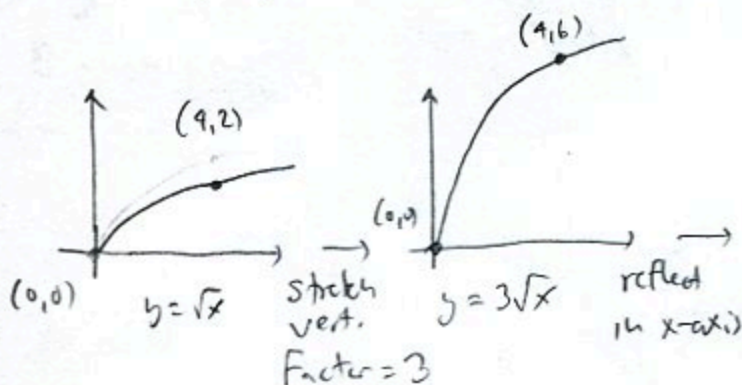 (4,6)
(4,2)
(0,0)
(0,0)
y = √x
→
stretch
vert.
Factor = 3
y = 3√x
→
reflect
in x-axis